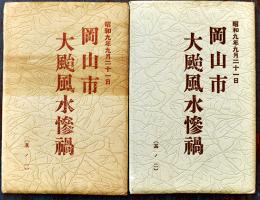 昭和九年九月二十一日
岡山市
大颱風水慘禍
(其ノ二)
昭和九年九月二十一日
岡山市
大颱風水慘禍
(其ノ一)